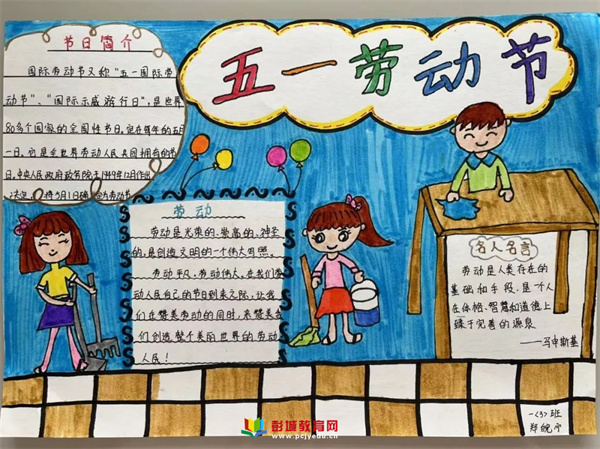 五一劳动节
节日简介
国际劳动节又称"五一国际劳
动节"、"国际示威游行日",是世界
80多个国家的全国性节日。定在每年的五月
一日。它是全世界劳动人民共同拥有的节
日。中央人民政府政务院于1949年12月作出
决定,将5月1日确
劳动
劳动是光荣的、崇高的、神圣
的,是创造文明的一个伟大
劳动平凡,劳动伟大,在我们劳
动人民自己的节日到来之际,让我
们在赞美劳动的同时,来赞美我
们创造整个美丽世界的劳动
人民!
名人名言
劳动是人类存在的
基础和手段,是一个人
在体格、智慧和道德上
臻于完善的源泉
——马申斯基
一(3)班
郑
彭城教育网
www.pcjyedu.cn